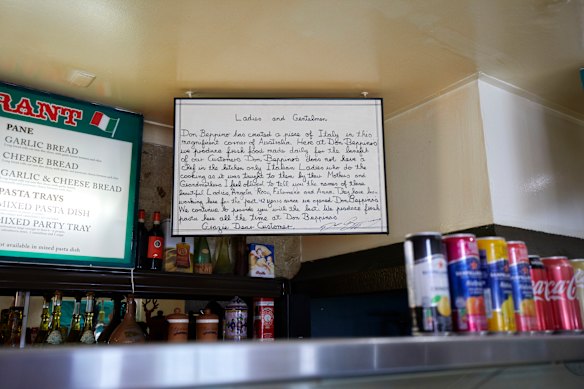 RANT
PANE
GARLIC BREAD
CHEESE BREAD
GARLIC & CHEESE BREAD
PASTA TRAYS
MIXED PASTA DISH
MIXED PARTY TRAY
available in mixed pasta dish
Ladies and Gentelmen
Don Beppino has created a piece of Italy in this
magnificent corner of Australia. Here at Don Beppinos
we produce fresh food made daily for the benefit
of our Customers. Don Beppinos does not have a
Chef in the kitchen only Italian Ladies who do the
cooking as it was taught to them by their Mothers and
Grandmothers I feel obliged to tell you the names of these
beautiful Ladies, Angela, Rosa, Filomena and Anna. They have been
working here for the past 12 years since we opened Don Beppinos
We continue to provide you with the best. We produce fresh
pasta here all the time at Don Beppinos
Grazie Dear Customer.
Coca-Cola